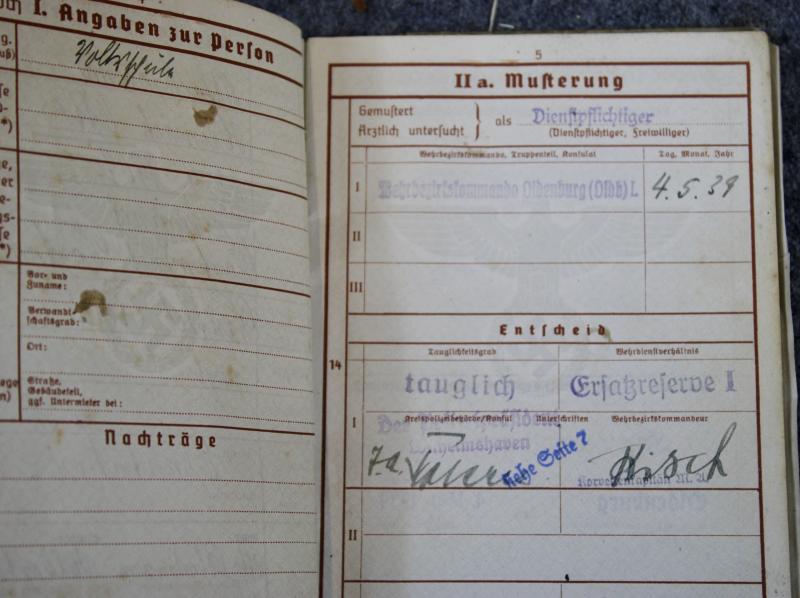 I. Angaben zur Person
Volksschule
Vor- und
Zuname:
Verwandt-
schaftsgrad:
Ort:
Straße,
Gebäudeteil,
ggf. Untermieter bei:
Nachträge
5
II a. Musterung
Gemustert
Ärztlich untersucht } als Dienstpflichtiger
(Dienstpflichtiger, Freiwilliger)
Wehrbezirkskommando, Truppenteil, Konsulat Tag, Monat, Jahr
I Wehrbezirkskommando Oldenburg (Oldb) I. 4.5.39
II
III
Entscheid
14
Tauglichkeitsgrad Wehrdienstverhältnis
tauglich Ersatzreserve I
I Kreispolizeibehörde/Konsul Unterschriften Wehrbezirkskommandeur
Der Polizeipräsident
Wilhelmshaven
siehe Seite 7
Korvettenkapitän
II